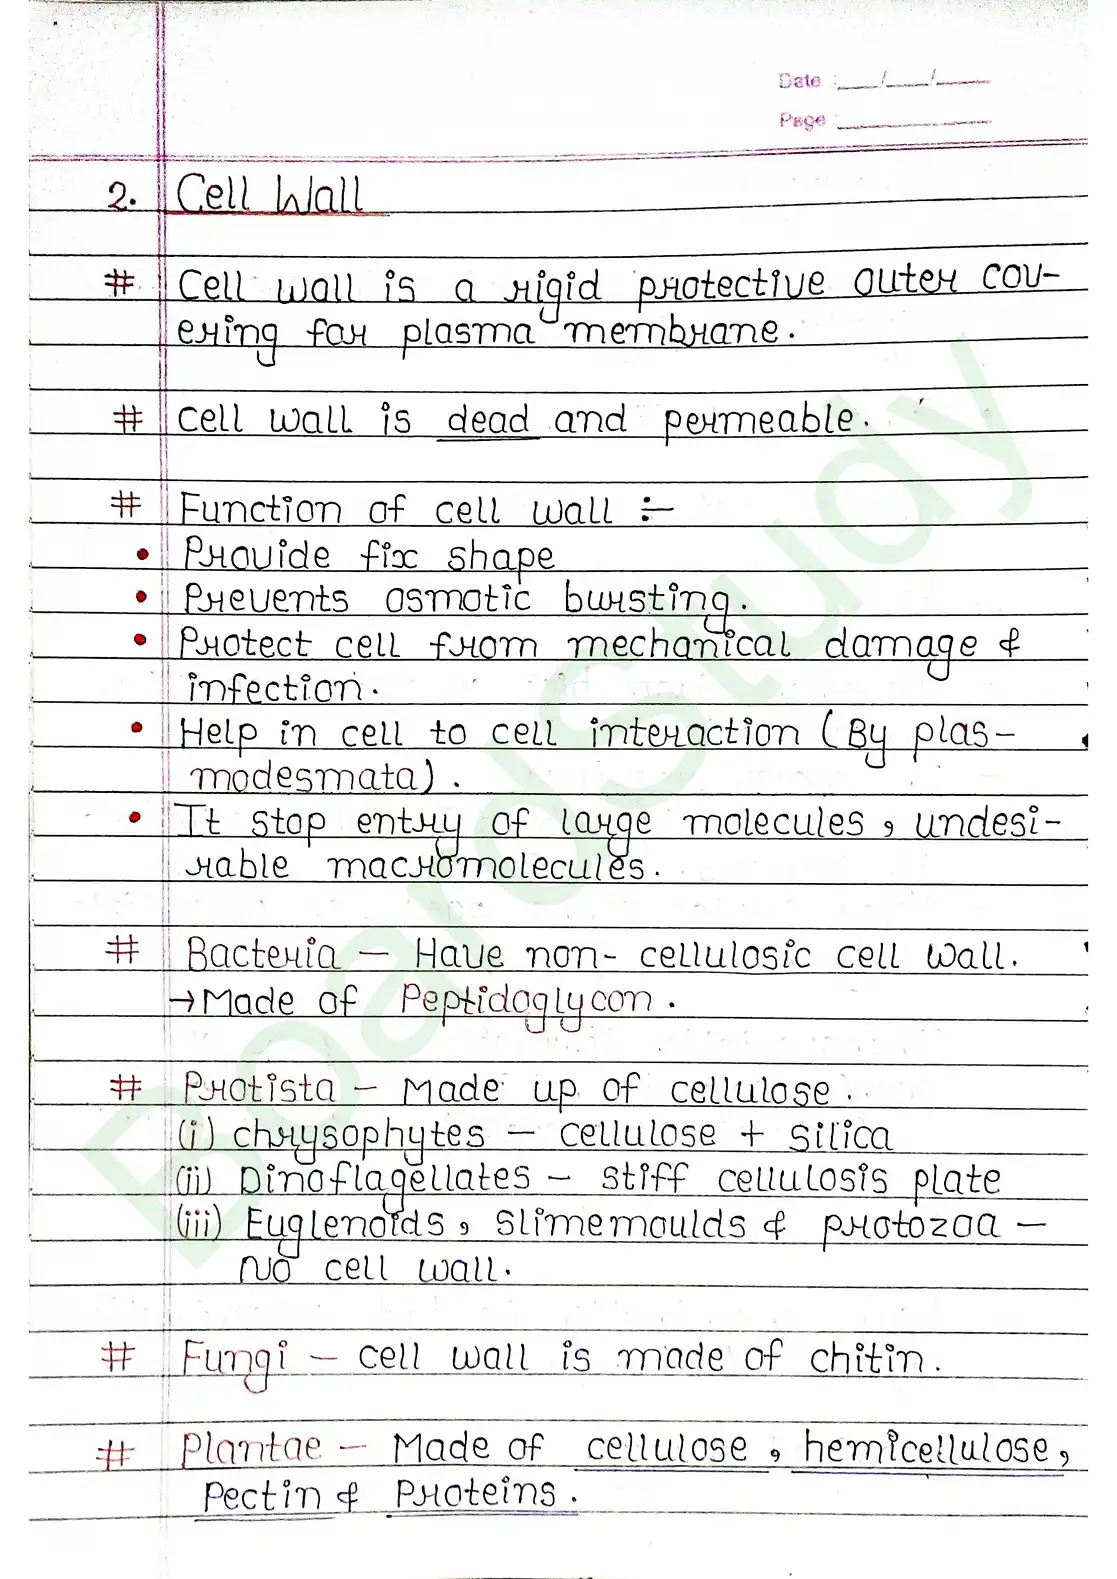 Date : __/__/__
Page : ____
2. Cell Wall
# Cell wall is a rigid protective outer cov-
ering for plasma membrane.
# cell wall is dead and permeable.
# Function of cell wall :-
• Provide fix shape
• Prevents osmotic bursting.
• Protect cell from mechanical damage &
infection.
• Help in cell to cell interaction (By plas-
modesmata).
• It stop entry of large molecules, undesi-
rable macromolecules.
# Bacteria — Have non-cellulosic cell wall.
→ Made of Peptidoglycon.
# Protista — Made up of cellulose.
(i) chrysophytes — cellulose + silica
(ii) Dinoflagellates — stiff cellulosis plate
(iii) Euglenoids, slimemoulds & protozoa —
No cell wall.
# Fungi — cell wall is made of chitin.
# Plantae — Made of cellulose, hemicellulose,
Pectin & Proteins.
BoardStudy